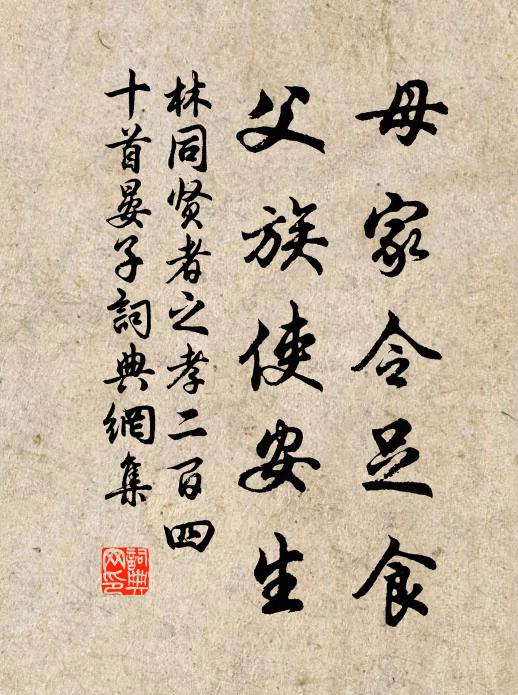 母家令足食
父族使安生
林同贤者之孝二百四
十首晏子詞典網集
詞典
网印